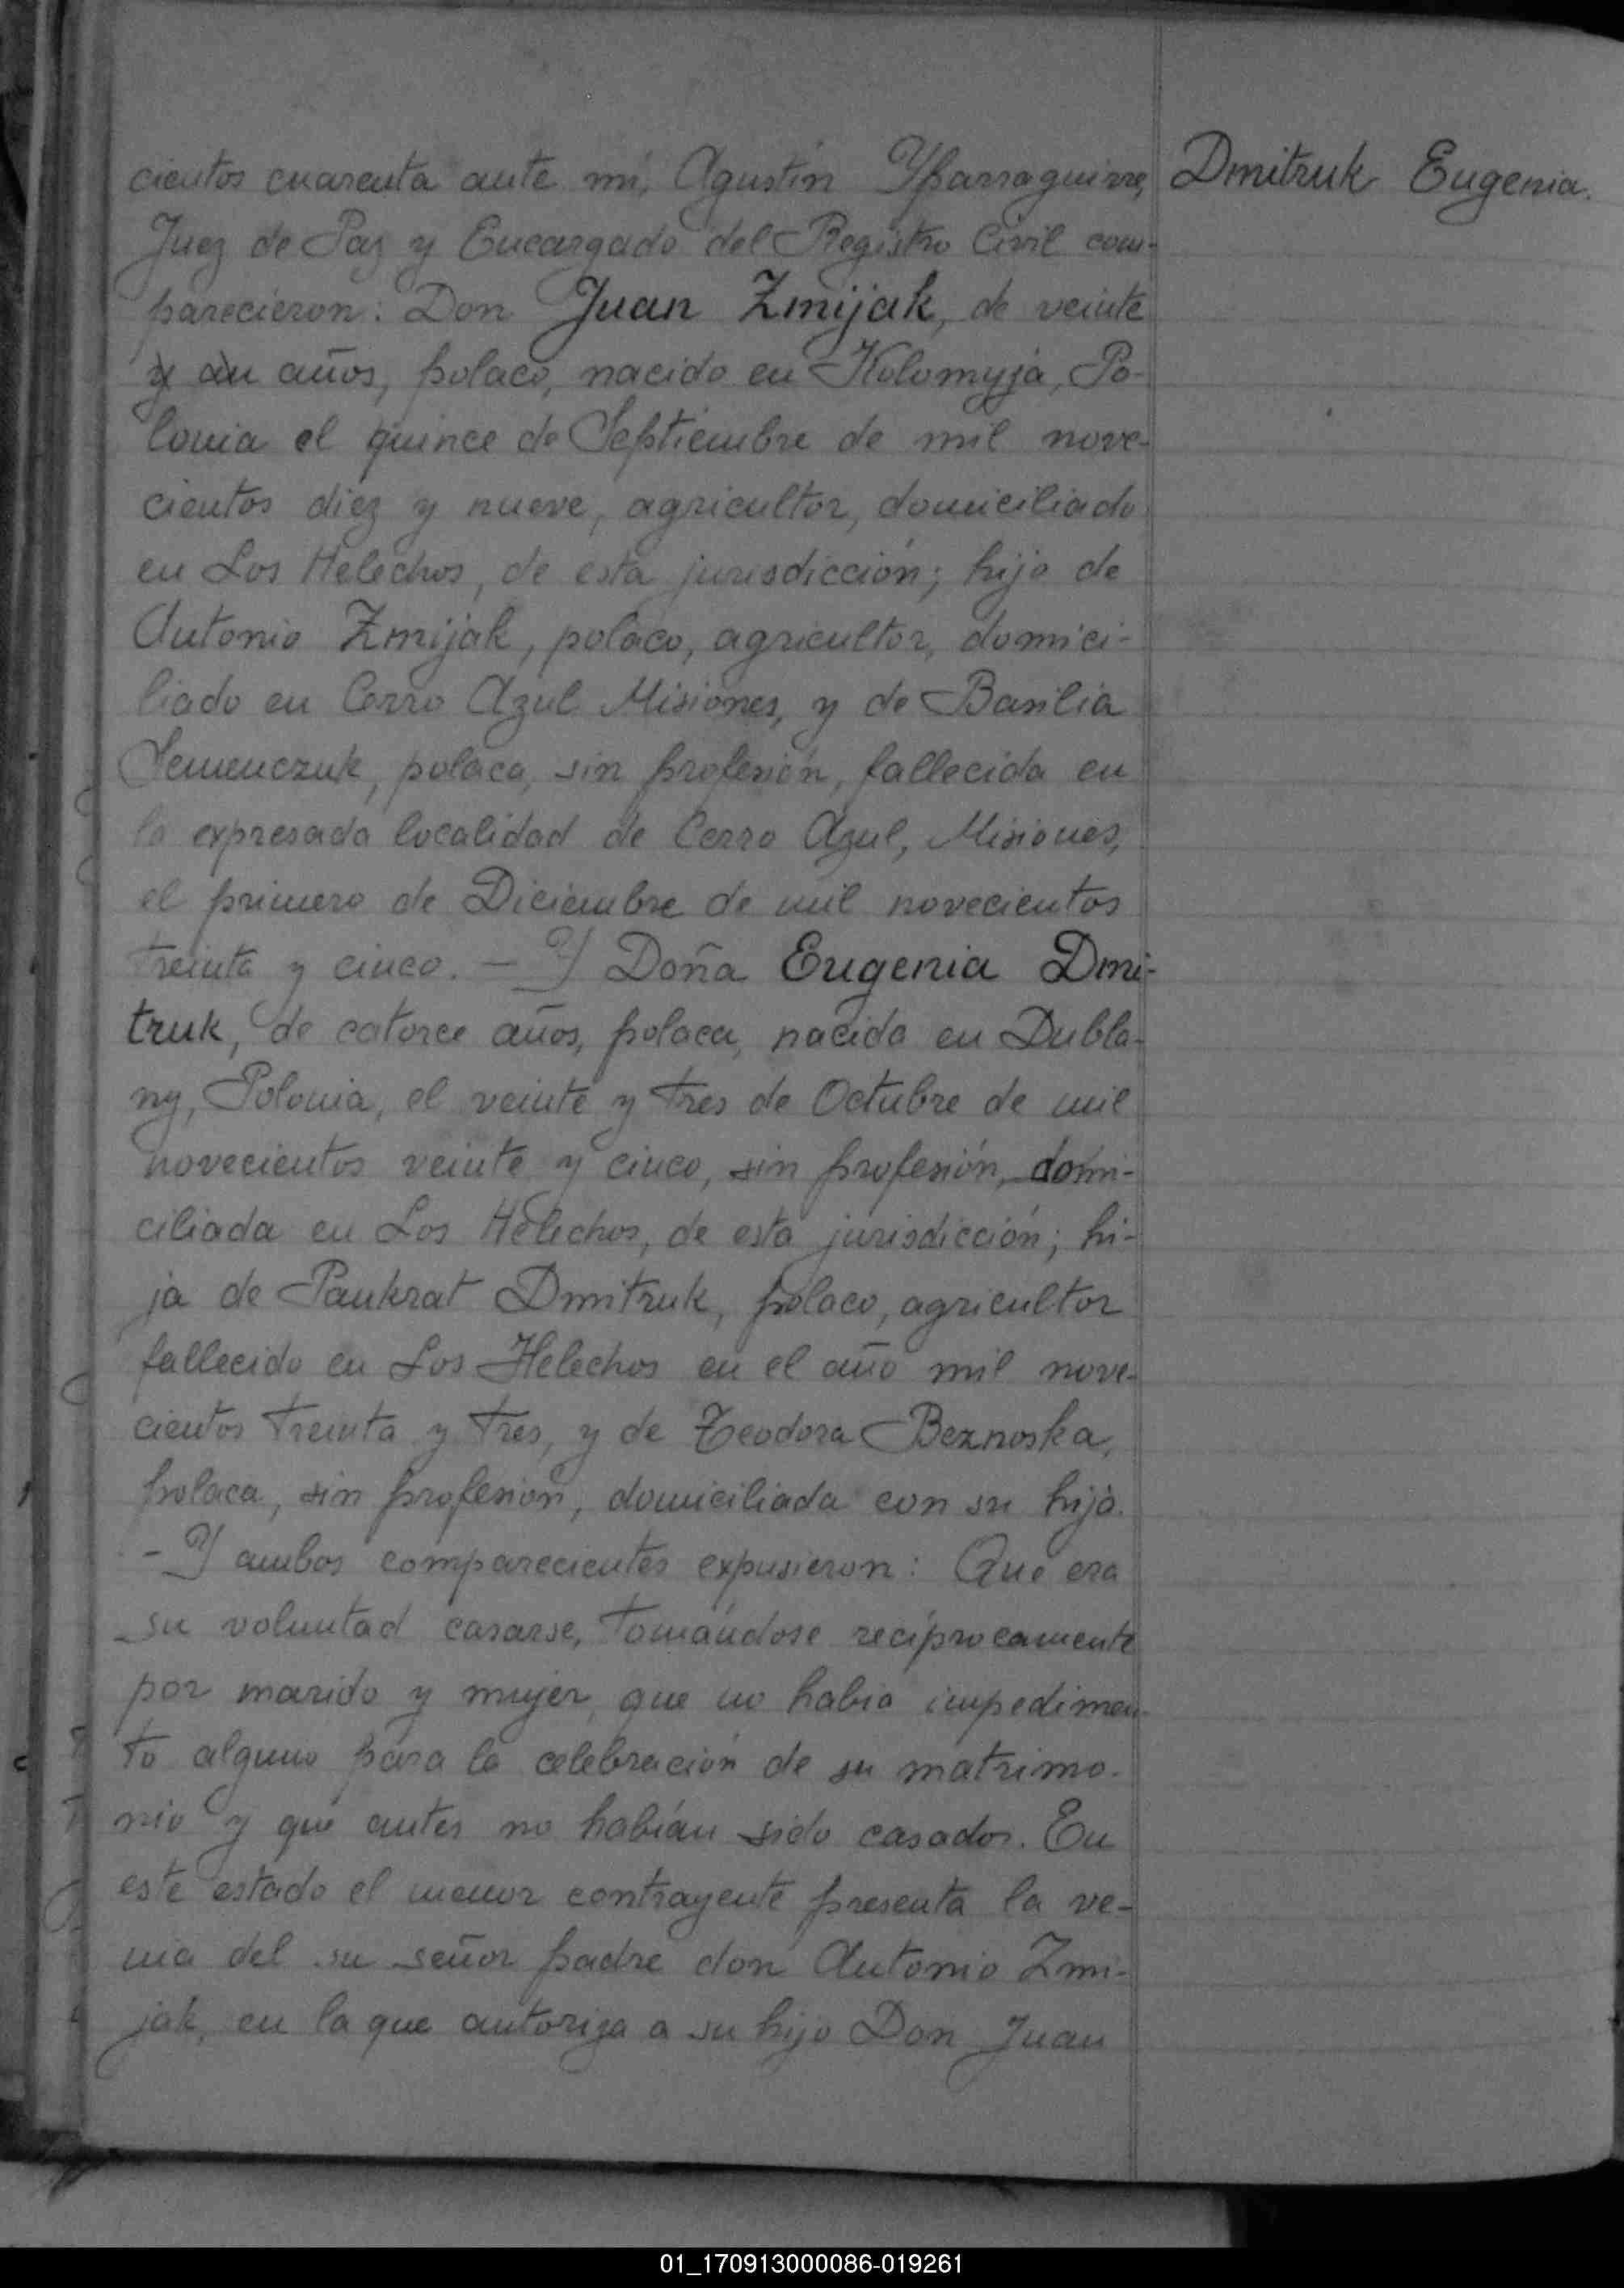 cientos cuarenta ante mí, Agustín Yparraguirre,
Dmitruk Eugenia.
Juez de Paz y Encargado del Registro Civil com-
parecieron: Don Juan Zmijak, de veinte
años, polaco, nacido en Kolomyja, Po-
lonia el quince de Septiembre de mil nove-
cientos diez y nueve, agricultor, domiciliado
en Los Helechos, de esta jurisdicción; hijo de
Antonio Zmijak, polaco, agricultor, domici-
liado en Cerro Azul Misiones, y de Basilia
Semenczuk, polaca, sin profesión, fallecida en
la expresada localidad de Cerro Azul, Misiones,
el primero de Diciembre de mil novecientos
treinta y cinco. — Y Doña Eugenia Dmi-
truk, de catorce años, polaca, nacida en Dubla-
ny, Polonia, el veinte y tres de Octubre de mil
novecientos veinte y cinco, sin profesión, domi-
ciliada en Los Helechos, de esta jurisdicción; hi-
ja de Pankrat Dmitruk, polaco, agricultor
fallecido en Los Helechos en el año mil nove-
cientos treinta y tres, y de Teodora Beznoska,
polaca, sin profesión, domiciliada con su hija.
- Y ambos comparecientes expusieron: Que era
su voluntad casarse, tomándose recíprocamente
por marido y mujer, que no había impedimen-
to alguno para la celebración de su matrimo-
nio y que antes no habían sido casados. En
este estado el menor contrayente presenta la ve-
nia del su señor padre don Antonio Zmi-
jak, en la que autoriza a su hijo Don Juan
01_170913000086-019261